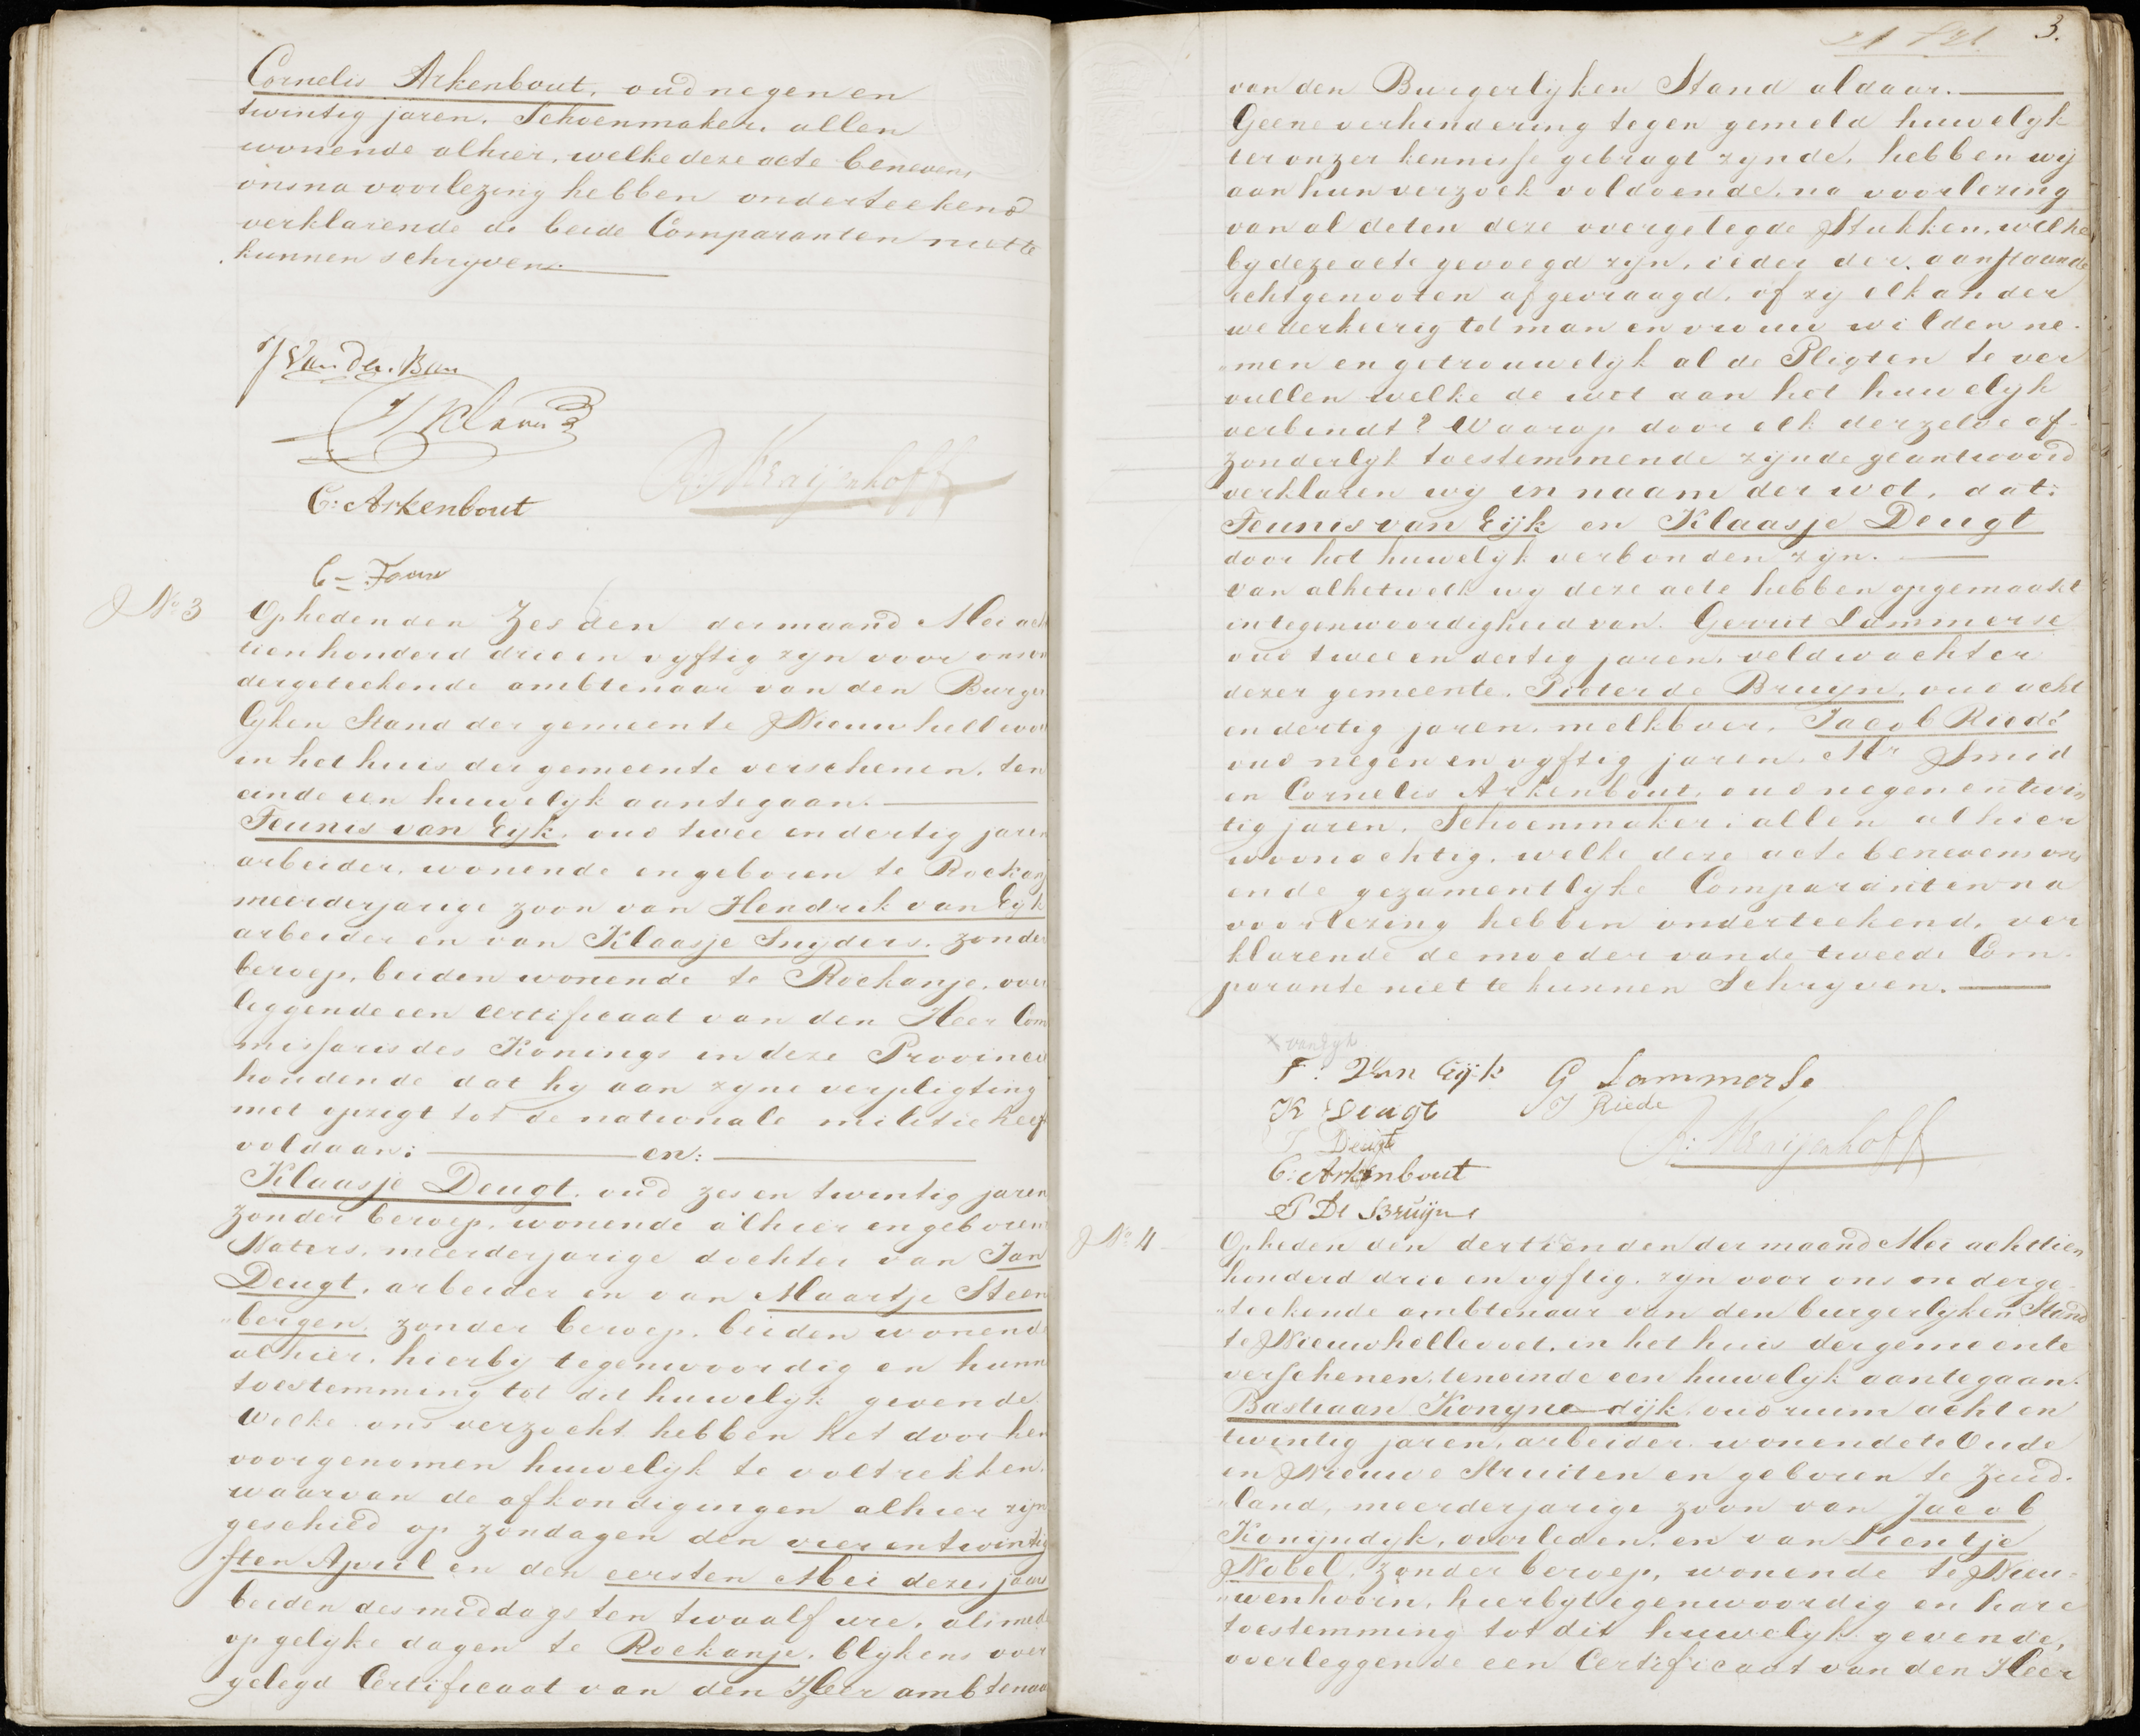 Cornelis Arkenbout, oud negen en
twintig jaren, Schoenmaker, allen
wonende alhier, welke deze acte benevens
ons na voorlezing hebben onderteekend
verklarende de beide Comparanten niet te
kunnen schryven.
J Van der Ban
C: Arkenbout
No 3
Op heden den Zesden der maand Mei ach
tienhonderd drie en vyftig zyn voor ons on
dergeteekende ambtenaar van den Burger
lyken Stand der gemeente Nieuwhellevoe
in het huis der gemeente verschenen, ten
einde een huwelyk aantegaan.
Teunis van Eyk, oud twee en dertig jaren
arbeider, wonende en geboren te Rockanj
meerderjarige zoon van Hendrik van Eyk
arbeider en van Klaasje Snyders, zonder
beroep, beiden wonende te Rockanje, over
leggende een certificaat van den Heer Com
missaris des Konings in deze Provincie
houdende dat hy aan zyne verpligting
met opzigt tot de nationale militie heef
voldaan; en:
Klaasje Deugt, oud zes en twintig jaren
zonder beroep, wonende alhier en geboren
Naters, meerderjarige dochter van Jan
Deugt, arbeider en van Maartje Steen
bergen, zonder beroep, beiden wonende
alhier, hierby tegenwoordig en hunn
toestemming tot dit huwelyk gevende.
Welke ons verzocht hebben het door hen
voorgenomen huwelyk te voltrekken,
waarvan de afkondigingen alhier zyn
geschied op zondagen den vier en twintig
sten April en den eersten Mei dezes jaars
beiden des middags ten twaalf ure, alsmede
op gelyke dagen te Rockanje, blykens over
gelegd Certificaat van den Heer ambtenaa
3.
van den Burgerlyken Stand aldaar.
Geene verhindering tegen gemeld huwelyk
ter onzer kennisse gebragt zynde, hebben wy
aan hun verzoek voldoende, na voorlezing
van al de ten deze overgelegde Stukken, welke
by deze acte gevoegd zyn, ieder der aanstaande
echtgenooten afgevraagd, of zy elkander
wederkeerig tot man en vrouw wilden ne
"men en getrouwelyk al de Pligten te ver
vullen welke de wet aan het huwelyk
verbindt? Waarop door elk derzelve af
zonderlyk toestemmende zynde geantwoord
verklaren wy in naam der wet, dat:
Teunis van Eijk en Klaasje Deugt
door het huwelyk verbonden zyn.
Van al hetwelk wy deze acte hebben opgemaakt
in tegenwoordigheid van Gerrit Lammerse
oud twee en dertig jaren, veldwachter
dezer gemeente, Pieter de Bruyn, oud acht
en dertig jaren, melkboer, Jacob Riedé
oud negen en vyftig jaren, Mr Smid
en Cornelis Arkenbout, oud negen en twin
tig jaren, Schoenmaker; allen alhier
woonachtig, welke deze acte benevens ons
en de gezamentlyke Comparanten na
voorlezing hebben onderteekend, ver
klarende de moeder van de tweede Com
parante niet te kunnen Schryven.
T. Van Eijk G Lammerse
K Deugt J Riede
Deugt
C: Arkenbout
P De Bruijne
No 4
Op heden den dertienden der maand Mei achttien
honderd drie en vyftig, zyn voor ons onderge
"teekende ambtenaar van den burgerlyken Stand
te Nieuwhellevoet, in het huis der gemeente
verschenen, teneinde een huwelyk aantegaan.
Bastiaan Konyne dijk, oud ruim acht en
twintig jaren, arbeider wonende te Oude
en Nieuwe Struiten en geboren te Zuid
"land, meerderjarige zoon van Jacob
Konijndyk, overleden, en van Lientje
Nobel, zonder beroep, wonende te Nieu
"wenhoorn, hierby tegenwoordig en hare
toestemming tot dit huwelyk gevende,
overleggende een Certificaat van den Heer